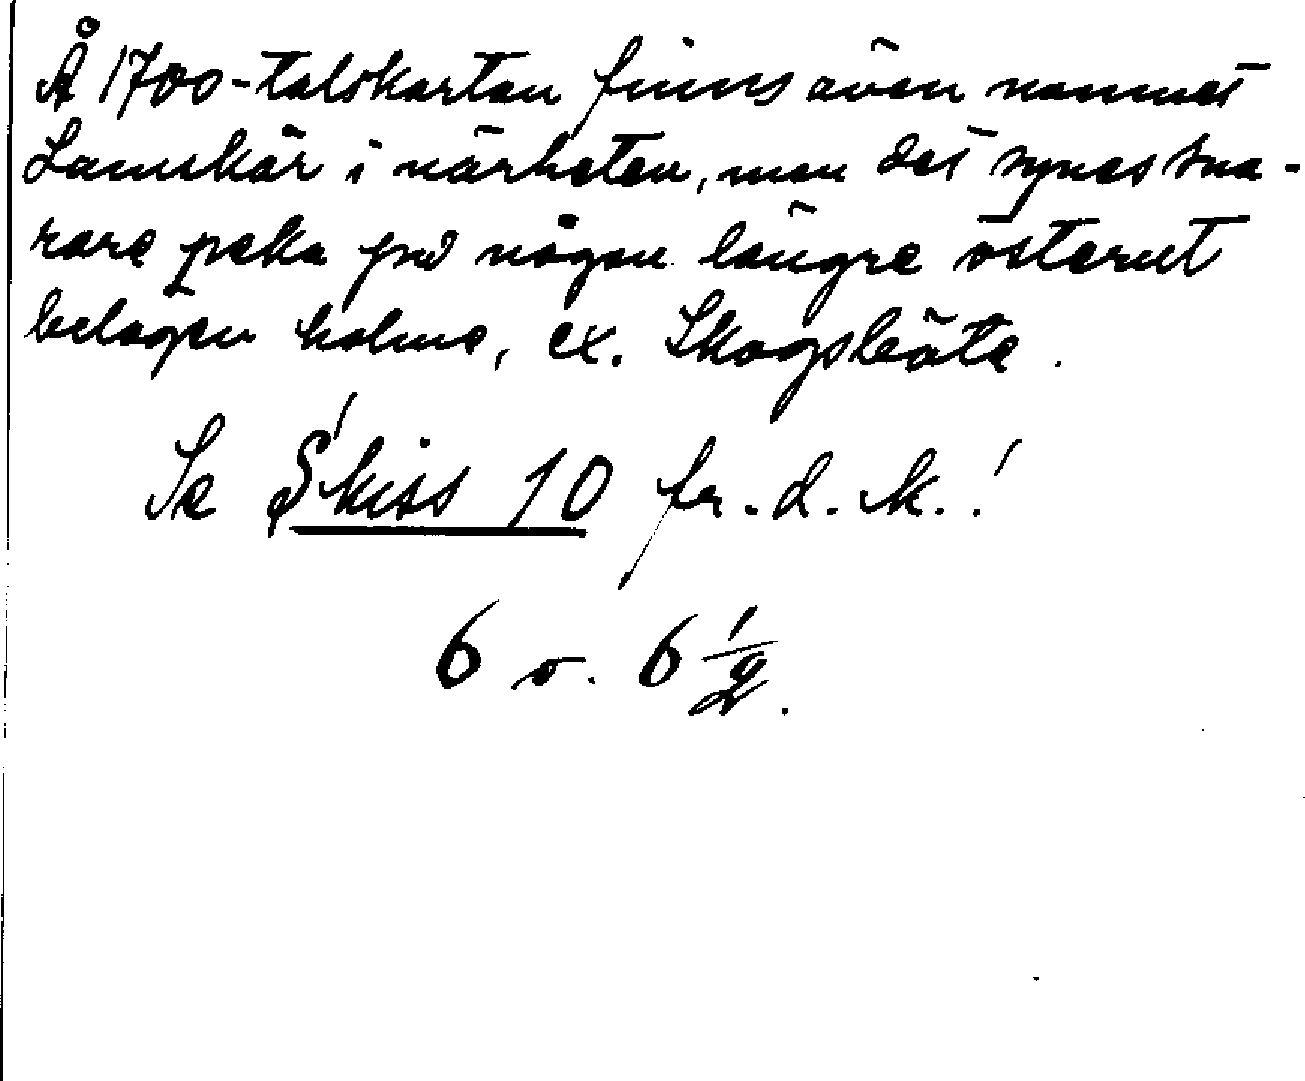 Å 1700-talskartan finns även namnet
Lamskär i närheten, men det synes sna-
rare peka på någon längre österut
belägen holme, ex. Skogsbåte.
Se Skiss 10 fr. d. k.!
6 o. 6 1/2.